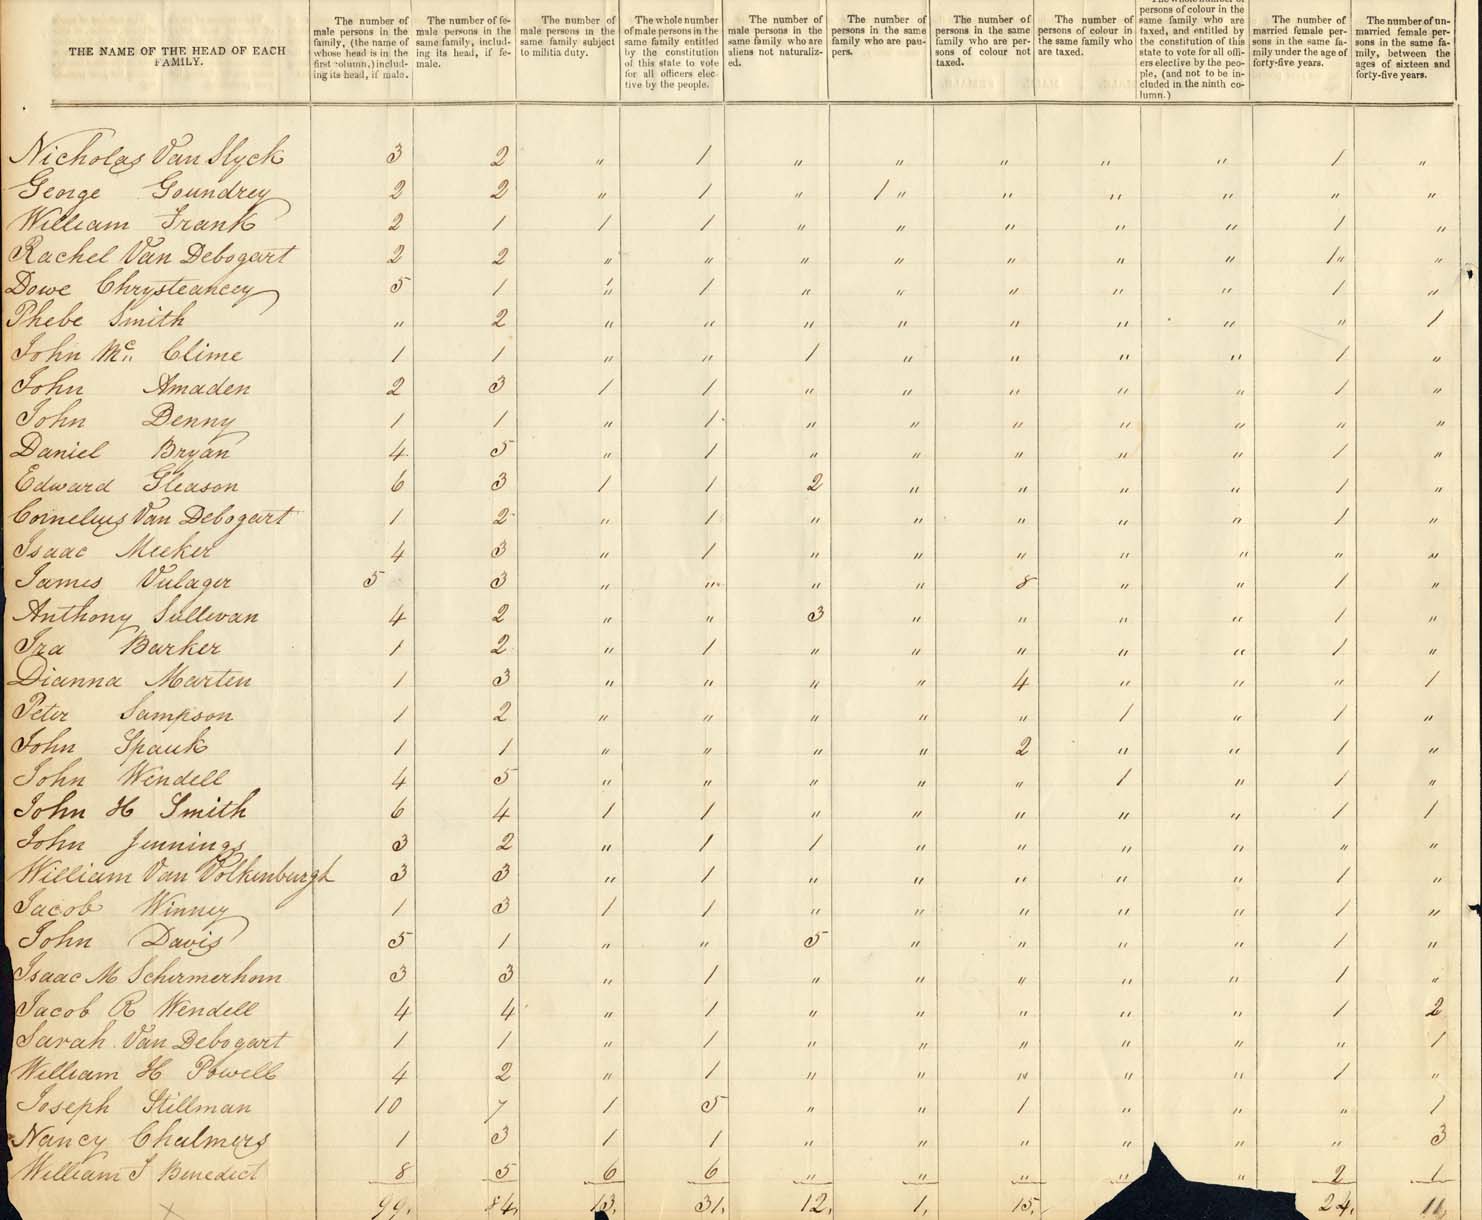 THE NAME OF THE HEAD OF EACH FAMILY.
The number of male persons in the family, (the name of whose head is in the first column,) including its head, if male.
The number of female persons in the same family, including its head, if female.
The number of male persons in the same family subject to militia duty.
The whole number of male persons in the same family entitled by the constitution of this state to vote for all officers elective by the people.
The number of male persons in the same family who are aliens not naturalized.
The number of persons in the same family who are paupers.
The number of persons in the same family who are persons of colour not taxed.
The number of persons of colour in the same family who are taxed.
The whole number of persons of colour in the same family who are taxed, and entitled by the constitution of this state to vote for all officers elective by the people, (and not to be included in the ninth column.)
The number of married female persons in the same family under the age of forty-five years.
The number of unmarried female persons in the same family, between the ages of sixteen and forty-five years.
Nicholas Van Slyck 3 2 " 1 " " " " " 1 "
George Goundrey 2 2 " 1 " 1 " " " " " "
William Frank 2 1 1 1 " " " " " 1 "
Rachel Van Debogart 2 2 " " " " " " " 1 " "
Dowe Chrysteancey 5 1 1 " 1 " " " " " 1 "
Phebe Smith " 2 " " " " " " " " 1
John Mc Clime 1 1 " " 1 " " " " 1 "
John Amaden 2 3 1 1 " " " " " 1 "
John Denny 1 1 " 1 " " " " " " "
Daniel Bryan 4 5 " 1 " " " " " 1 "
Edward Gleason 6 3 1 1 2 " " " " 1 "
Cornelius Van Debogart 1 2 " 1 " " " " " 1 "
Isaac Meeker 4 3 " 1 " " " " " " "
James Vulager 5 3 " " " " 8 " " 1 "
Anthony Sullivan 4 2 " " 3 " " " " 1 "
Ira Barker 1 2 " 1 " " " " " 1 "
Dianna Marten 1 3 " " " " 4 " " " 1
Peter Sampson 1 2 " " " " " 1 " 1 "
John Spauk 1 1 " " " " 2 " " 1 "
John Wendell 4 5 " " " " " 1 " 1 "
John H Smith 6 4 1 1 " " " " " 1 1
John Jennings 3 2 " 1 1 " " " " " "
William Van Volkenburgh 3 3 " 1 " " " " " 1 "
Jacob Winney 1 3 1 1 " " " " " 1 "
John Davis 5 1 " " 5 " " " " 1 "
Isaac M Schermerhorn 3 3 " 1 " " " " " 1 "
Jacob R Wendell 4 4 " 1 " " " " " 1 2
Sarah Van Debogart 1 1 " 1 " " " " " " 1
William H Powell 4 2 " 1 " " " " " 1 "
Joseph Stillman 10 7 1 5 " " 1 " " " 1
Nancy Chalmers 1 3 1 1 " " " " " " 3
William J Benedict 8 5 6 6 " " " " " 2 1
99. 84. 13. 31. 12. 1. 15. 24. 11